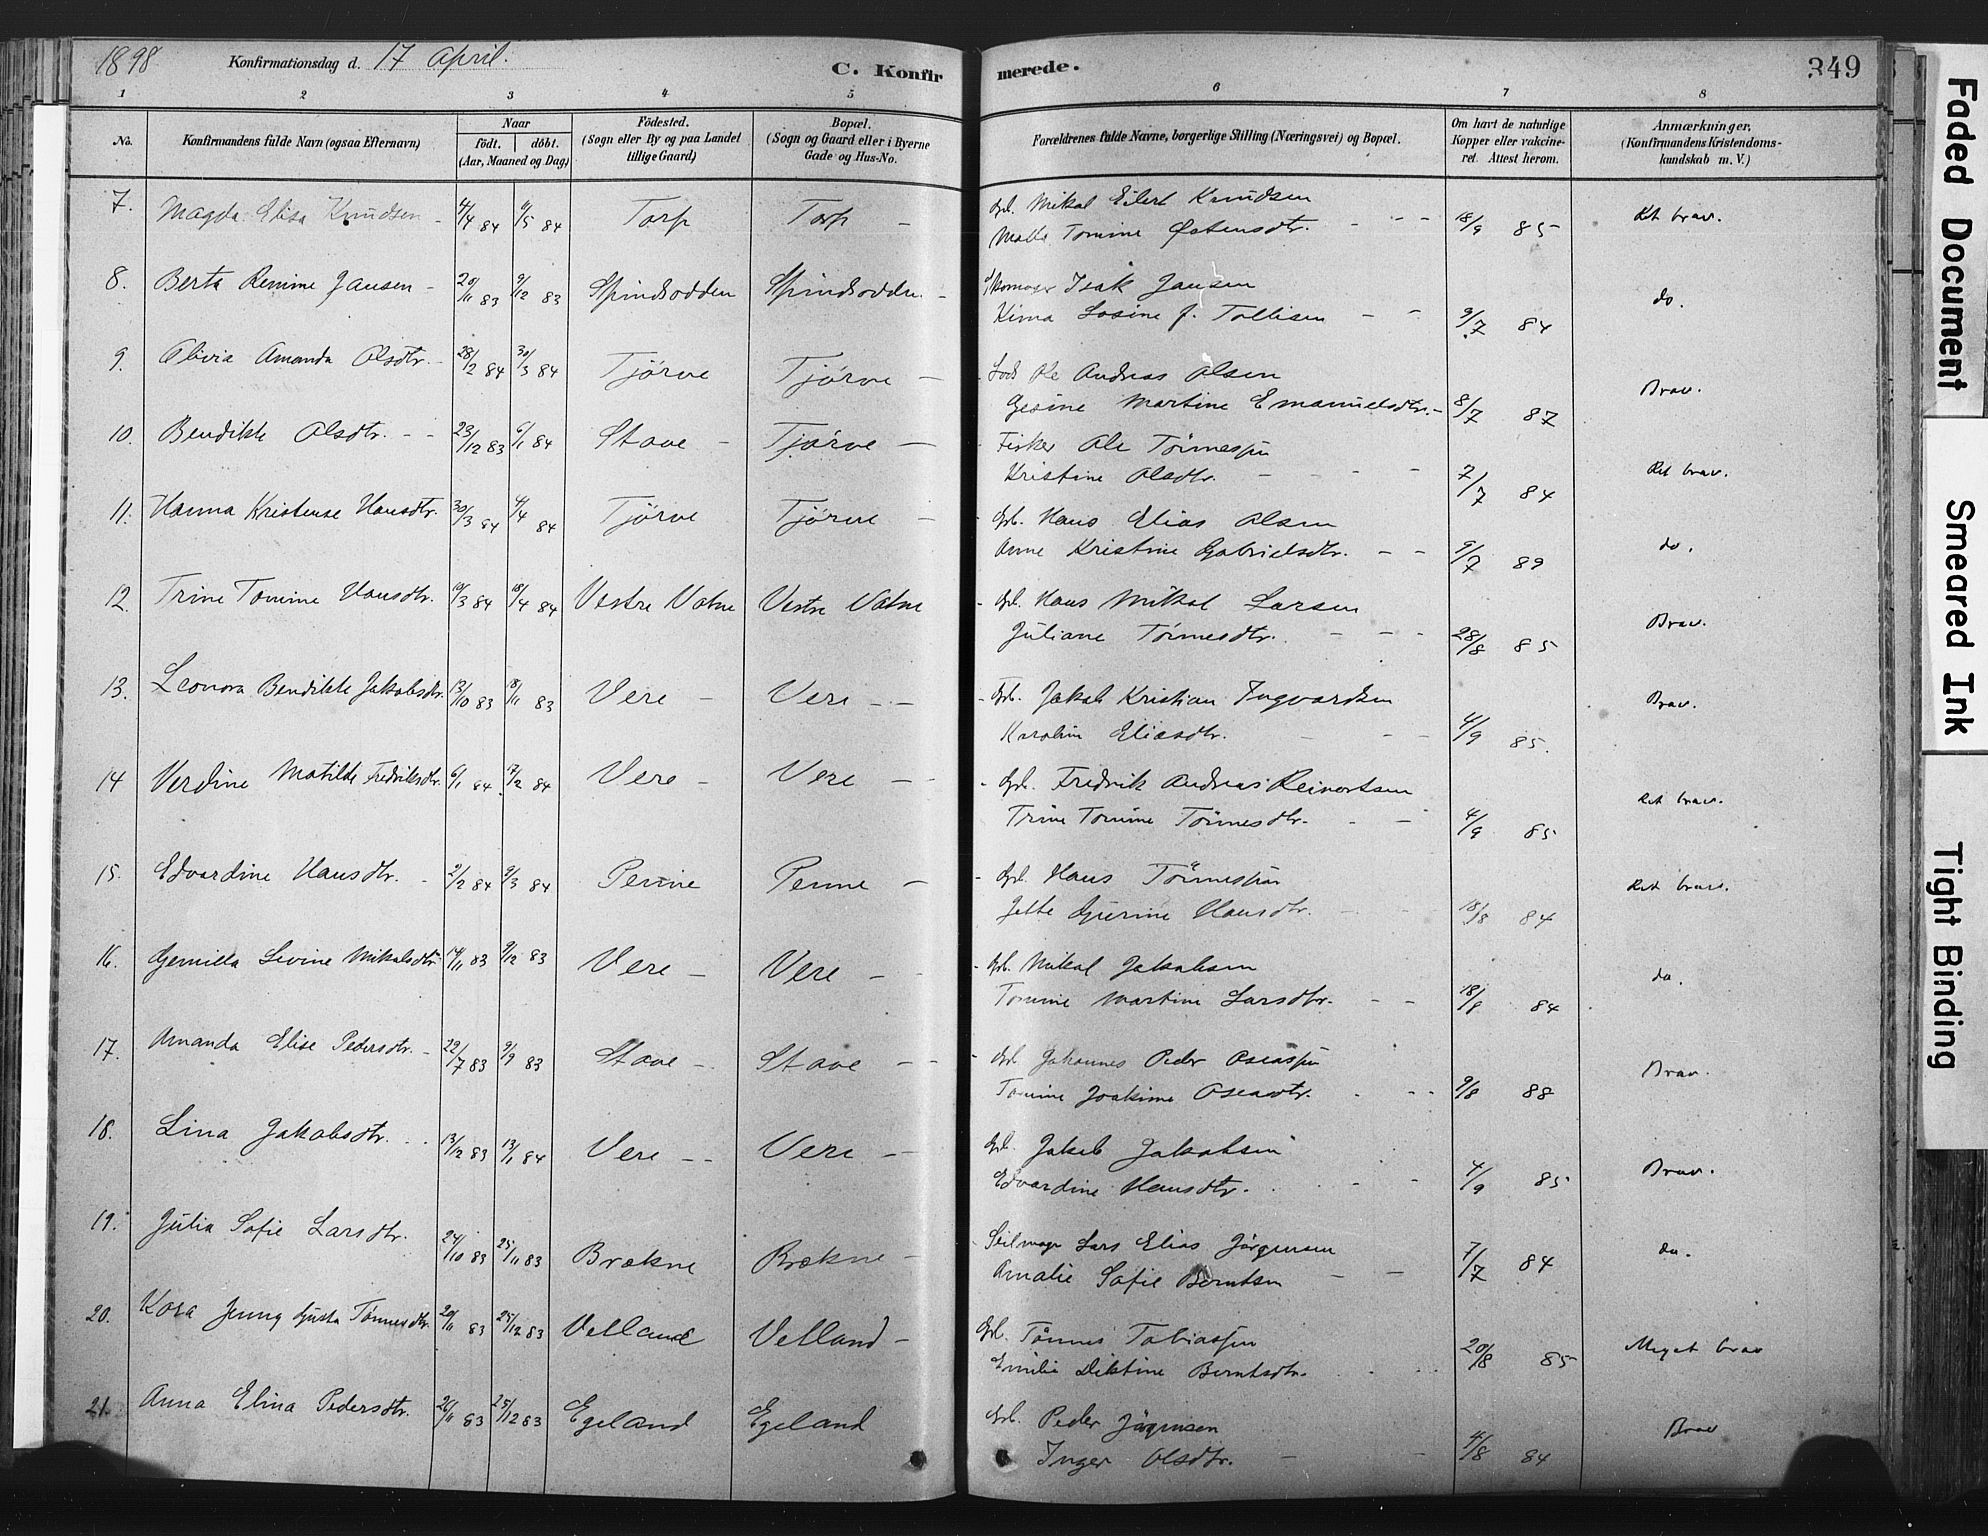 1898 Konfirmationsdag d. 17 April. C. Konfir merede. 349
1 2 3 4 5 6 7 8
No. Konfirmandens fulde Navn (ogsaa Efternavn) Naar født. døbt. (Aar, Maaned og Dag) Fødested. (Sogn eller By og paa Landet tillige Gaard) Bopæl. (Sogn og Gaard eller i Byerne Gade og Hus-No. Forældrenes fulde Navne, borgerlige Stilling (Næringsvei) og Bopæl. Om havt de naturlige Kopper eller vakcineret. Attest herom. Anmærkninger, (Konfirmandens Kristendomskundskab m. V.)
7. Magda Elisa Knudsen - 4/4 84 /5 84 Torp Torp - Gbl. Mikal Eilert Knudsen
Malle Tomine Østensdtr. - - - 18/9 85 Ret brav.
8. Berta Remine Jansen - 20/11 83 9/12 83 Spindsodden Spindsodden - Skomager Isak Jansen
Kima Losine f. Tallisen - - 9/7 84 do.
9. Olivia Amanda Olsdtr. - 28/2 84 30/3 84 Tjørve Tjørve - Lods Ole Andreas Olsen
Gesine Martine Emanuelsdtr. - 8/7 87 Brav.
10. Bendikte Olsdtr. - - 23/12 83 6/1 84 Stave - Tjørve - Fisker Ole Tønnessen
Kristine Olsdtr. - - - - 7/7 84 Ret brav.
11. Hanna Kristense Hansdtr. 30/3 84 /4 84 Tjørve Tjørve - Gbr. Hans Elias Olsen
Anne Kristine Gabrielsdtr. - - 9/7 89 do.
12. Trine Tomine Hansdtr. 10/3 84 18/4 84 Vestre Vatne Vestre Vatne - Gbl. Hans Mikal Larsen
Juliane Tønnesdtr. - - - 28/8 85 Brav.
13. Leonora Bendikte Jakobsdtr. 13/10 83 18/11 83 Vere - Vere - - Gbr. Jakob Kristian Ingvardsen
Karoline Eliasdtr. - - - 4/9 85. Brav.
14 Verdine Matilde Fredriksdtr. 6/1 84 17/2 84 Vere - Vere - Gbl. Fredrik Andreas Reinertsen
Trine Tomine Tønnesdtr. - - 4/9 85 Ret brav.
15. Edvardine Hansdtr. - 2/2 84 9/3 84 Penne Penne - Gbl. Hans Tønnessen
Jette Gurine Hansdtr. - - 18/8 84 Ret brav.
16. Gemilla Sevine Mikalsdtr 14/11 83 9/12 83 Vere - Vere - Gbl. Mikal Jakobsen
Tomine Martine Larsdtr. - - 18/8 84 do.
17. Amanda Elise Pedersdtr. - 22/7 83 9/9 83 Stave - Stave - - Gbl. Johannes Peder Oseassen
Tomine Joakime Oseasdtr. - - - 9/8 88 Brav.
18. Lina Jakobsdtr. - - 13/12 83 13/1 84 Vere - - Vere - Gbl. Jakob Jakobsen
Edvardine Hansdtr. - - - 4/9 85 Brav.
19. Julia Sofie Larsdtr. 24/10 83 25/11 83 Brækne Brækne - Seilmager Lars Elias Jørgensen
Amalie Sofie Berntsen - - 7/7 84 do.
20. Kora Jenny Gusta Tønnesdtr. 20/11 83 25/12 83 Velland Velland - Gbl. Tønnes Tobiassen
Emilie Diktine Berntsdtr. - - 20/8 85 Meget brav
21. Anna Elina Pedersdtr. 20/11 83 25/12 83 Egeland Egeland Gbl. Peder Jørgensen
Inger Olsdtr. - - 4/8 84 Brav
Faded Document
Smeared Ink
Tight Binding